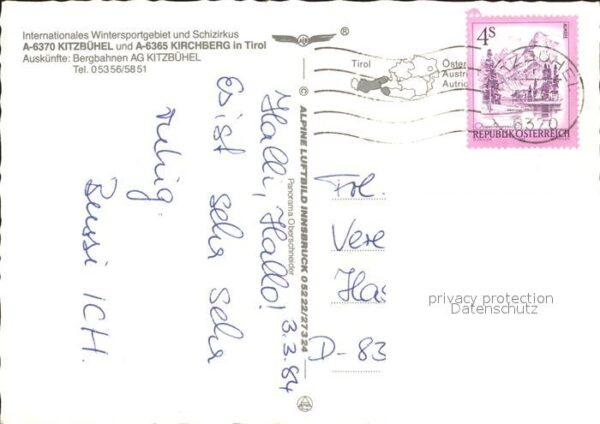 Internationales Wintersportgebiet und Schizirkus
A-6370 KITZBÜHEL und A-6365 KIRCHBERG in Tirol
Auskünfte: Bergbahnen AG KITZBÜHEL
Tel. 05356/5851
Halli, Hallo! 3.3.84
Es ist sehr sehr
ruhig.
Bussi ICH.
© ALPINE LUFTBILD INNSBRUCK 05222/27324
Panorama Oberschneider
®
Tirol
Öster
Austri
Autric
KITZBÜHEL
6370
4S
REPUBLIK ÖSTERREICH
Frl.
Vere
Has
D-83
privacy protection
Datenschutz